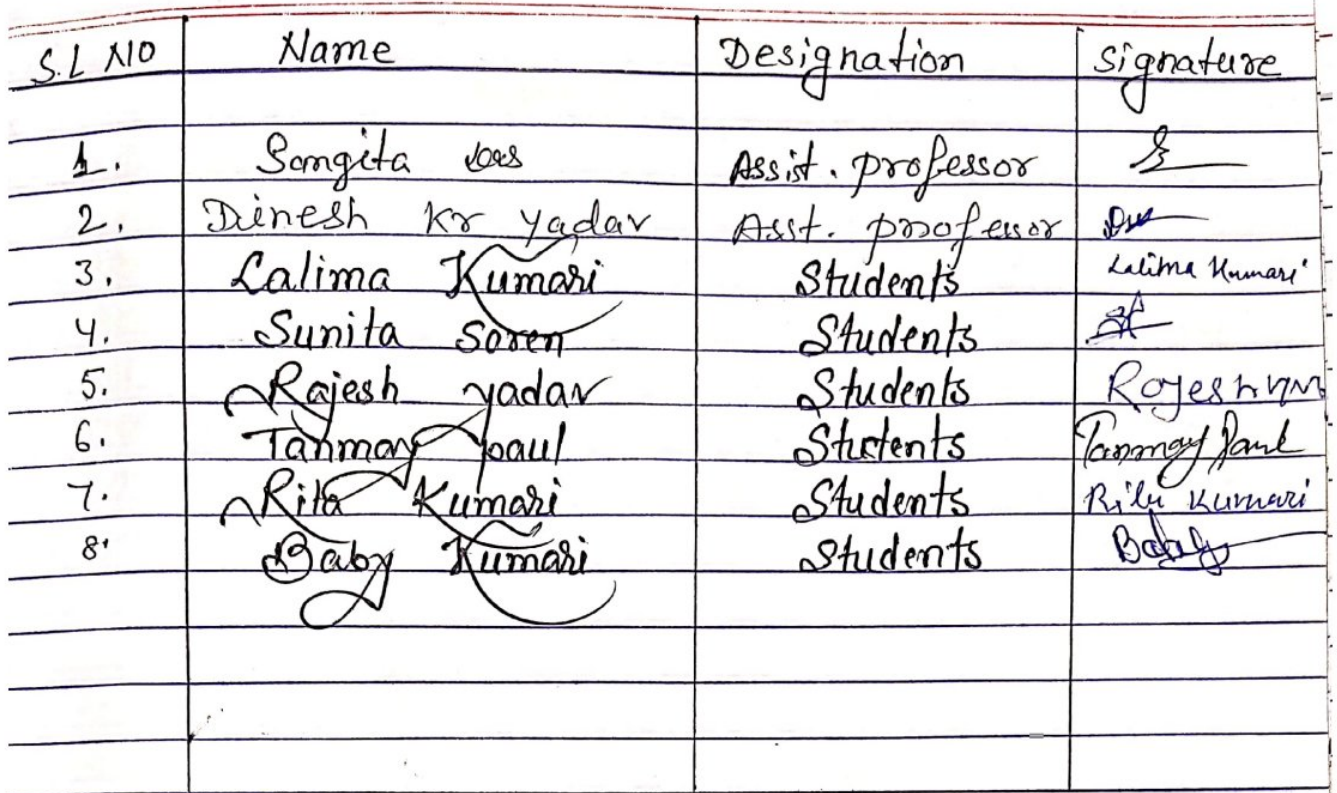 S.L NO Name Designation Signature
1. Sangita das Assist. professor
2. Dinesh Kr yadav Asst. professor
3. Lalima Kumari Students Lalima Kumari
4. Sunita Soren Students
5. Rajesh yadav Students Rajesh
6. Tanmay paul Students Tanmay Paul
7. Rita Kumari Students Kumari
8. Baby Kumari Students Baby